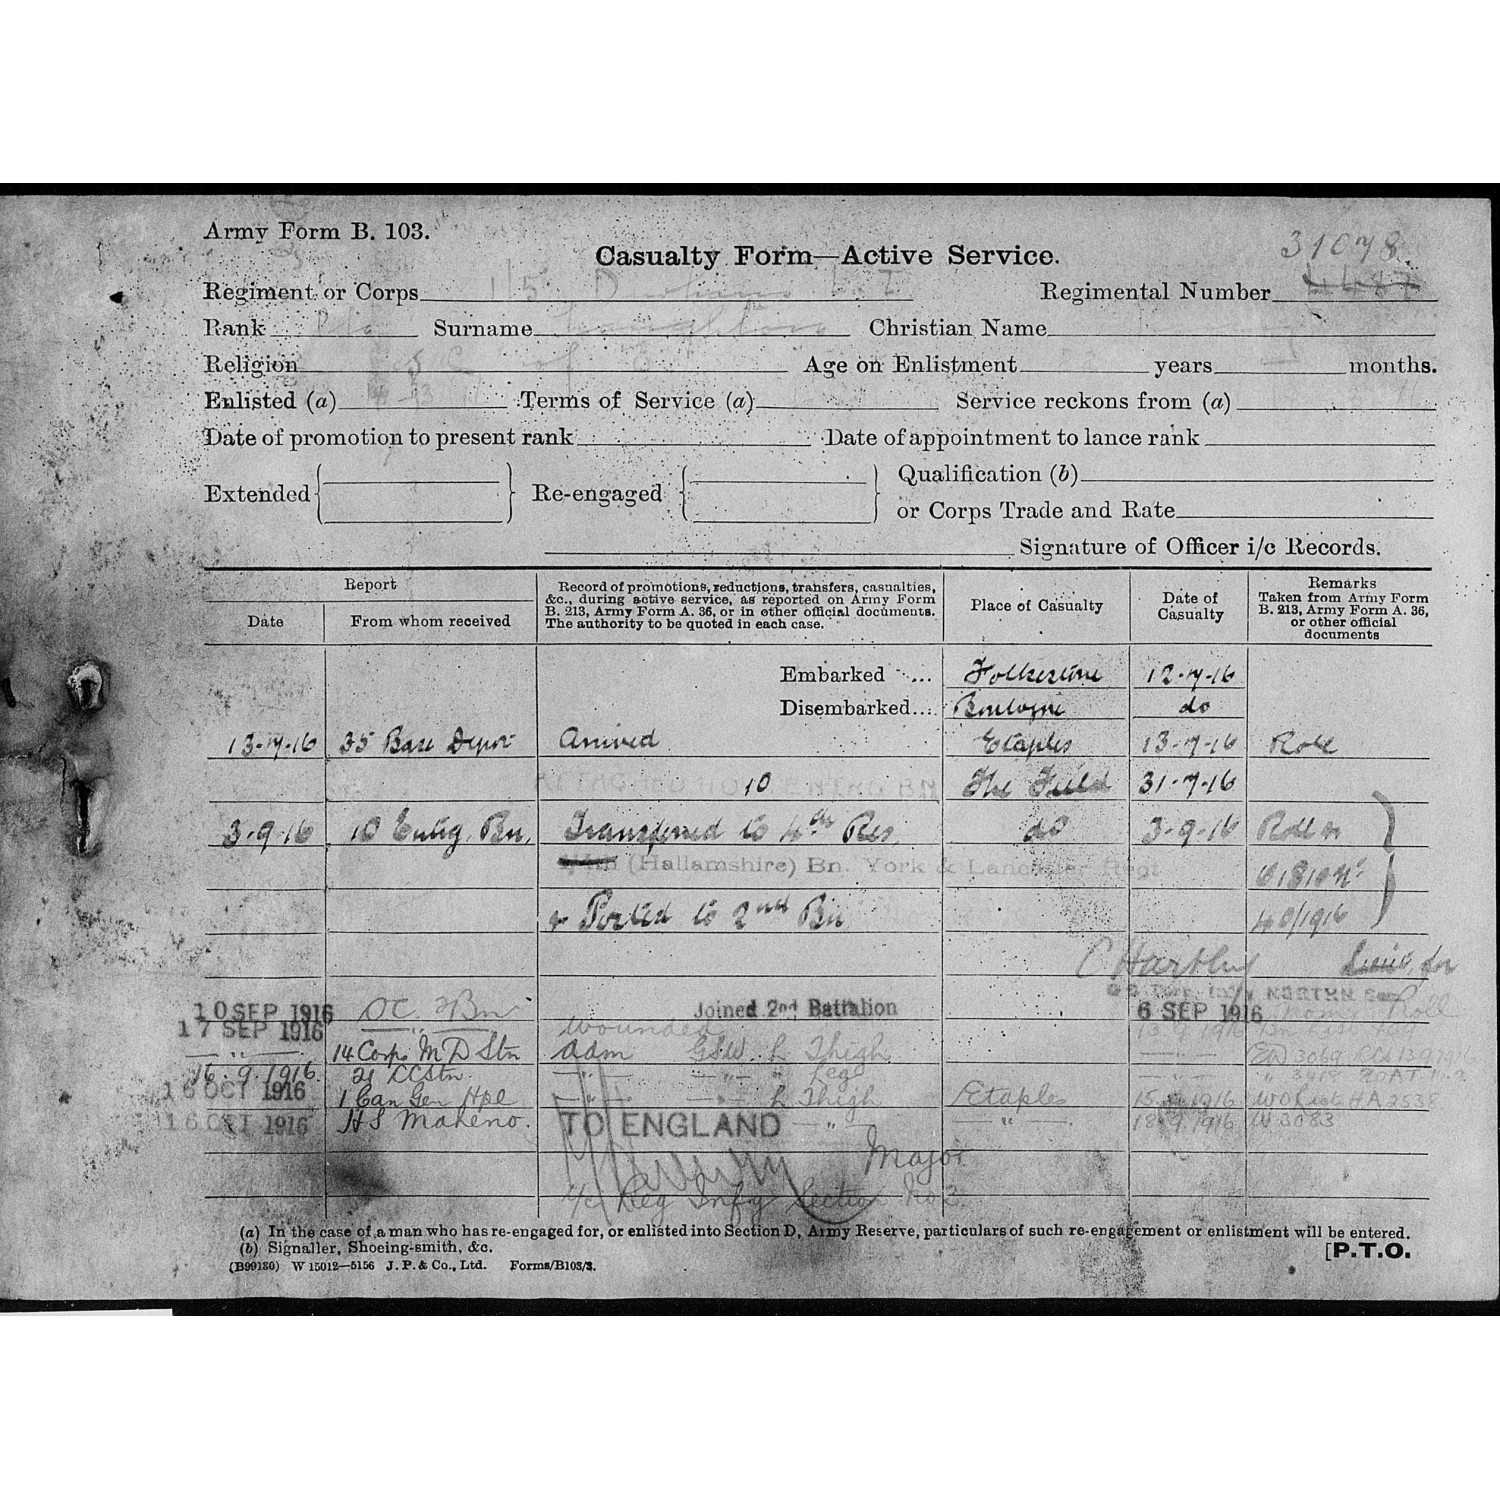 Army Form B. 103.
Casualty Form—Active Service.
31078
Regiment or Corps 1/5 D L I Regimental Number 4487
Rank Pte Surname Christian Name
Religion C of E Age on Enlistment years months.
Enlisted (a) Terms of Service (a) Service reckons from (a)
Date of promotion to present rank Date of appointment to lance rank
Extended Re-engaged Qualification (b)
or Corps Trade and Rate
Signature of Officer i/c Records.
Report
Date From whom received
Record of promotions, reductions, transfers, casualties, &c., during active service, as reported on Army Form B. 213, Army Form A. 36, or in other official documents. The authority to be quoted in each case.
Place of Casualty
Date of Casualty
Remarks Taken from Army Form B. 213, Army Form A. 36, or other official documents
Embarked ... Folkestone 12-7-16
Disembarked... Boulogne do
13-7-16 35 Base Depot Arrived Etaples 13-7-16 Roll
10 The Field 31-7-16
3-9-16 10 Entrg. Bn, Transferred to 4th Res, do 3-9-16 Roll
(Hallamshire) Bn. York & Lancaster Regt
& Posted to 2nd Bn 40/1916
C Hartley
10 SEP 1916 OC 2 Bn Joined 2nd Battalion 6 SEP 1916 Roll
17 SEP 1916 " Wounded
— " — 14 Corps M D Stn Adm GSW L Thigh — " — 3069
16.9.1916 21 CCStn. — " — — " — Leg — " —
16 OCT 1916 1 Can Gen Hpl — " — — " — L Thigh Etaples 15.9.1916 W O List HA 2538
16 OCT 1916 H S Maheno. TO ENGLAND — " — — " — 18.9.1916 W 3083
Major
i/c Reg Infy Section No 3.
(a) In the case of a man who has re-engaged for, or enlisted into Section D, Army Reserve, particulars of such re-engagement or enlistment will be entered.
(b) Signaller, Shoeing-smith, &c.
[P.T.O.
(B99180) W 15012—5156 J. P. & Co., Ltd. Forms/B103/3.